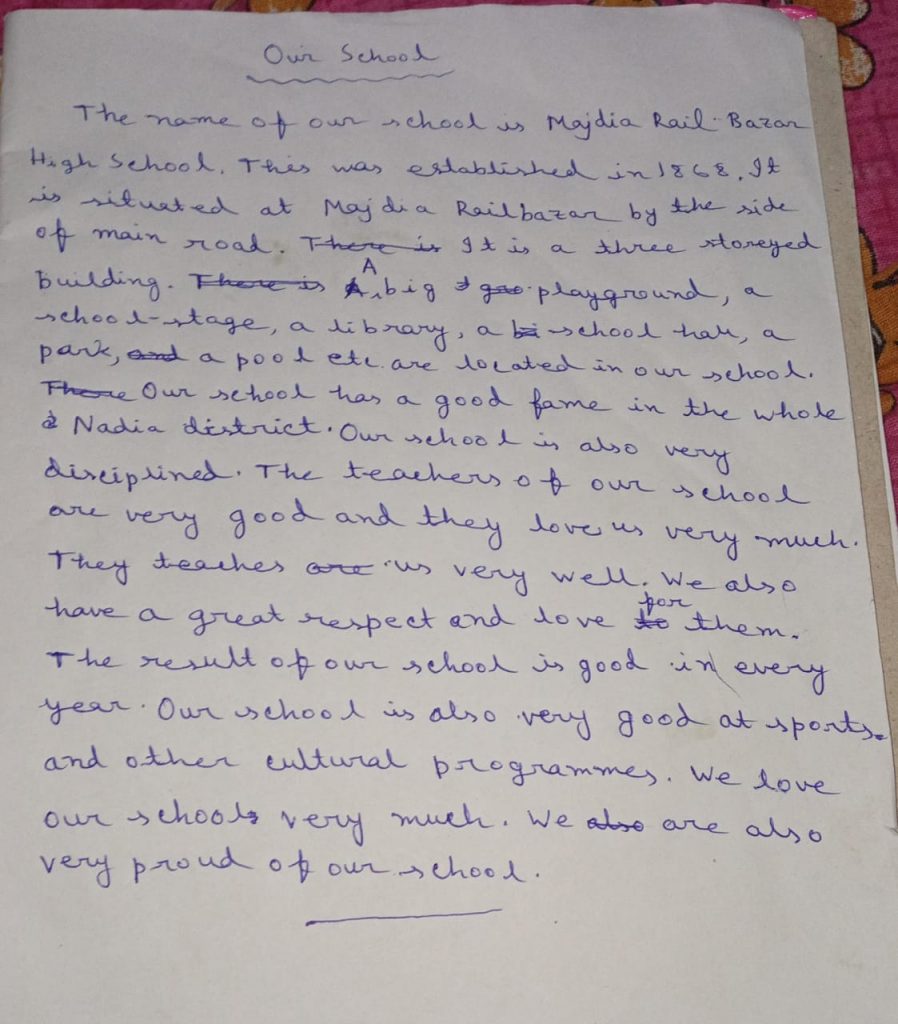 Our School
The name of our school is Majdia Rail Bazar
High School. This was established in 1868. It
is situated at Majdia Railbazar by the side
of main road. There is It is a three storeyed
building. There is A big playground, a
school-stage, a library, a school hall, a
park, and a pool etc. are located in our school.
There Our school has a good fame in the whole
Nadia district. Our school is also very
disciplined. The teachers of our school
are very good and they love us very much.
They teaches are us very well. We also
have a great respect and love to for them.
The result of our school is good in every
year. Our school is also very good at sports
and other cultural programmes. We love
our school very much. We also are also
very proud of our school.